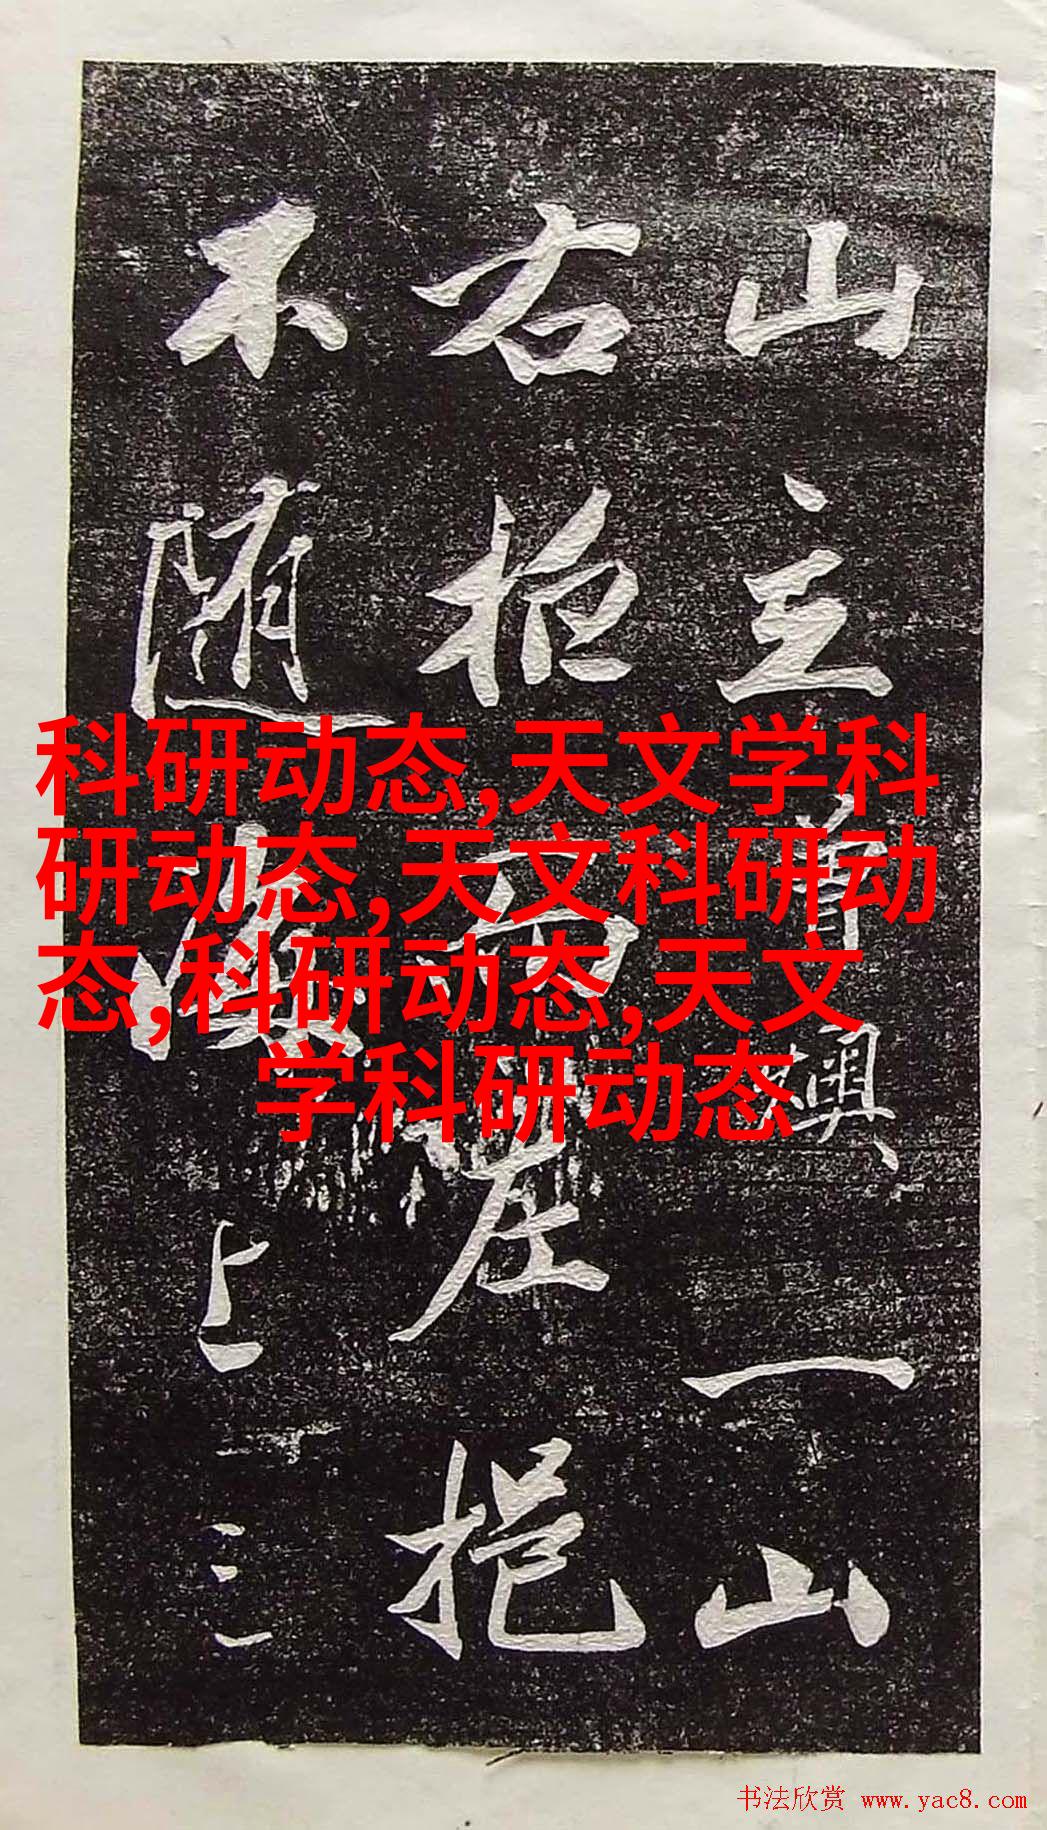 山主尊興、一山
右拒而左挹
不随 上二三
科研动态,天文学科
研动态,天文科研动
态,科研动态,天文
学科研动态
书法欣赏 www.yac8.com